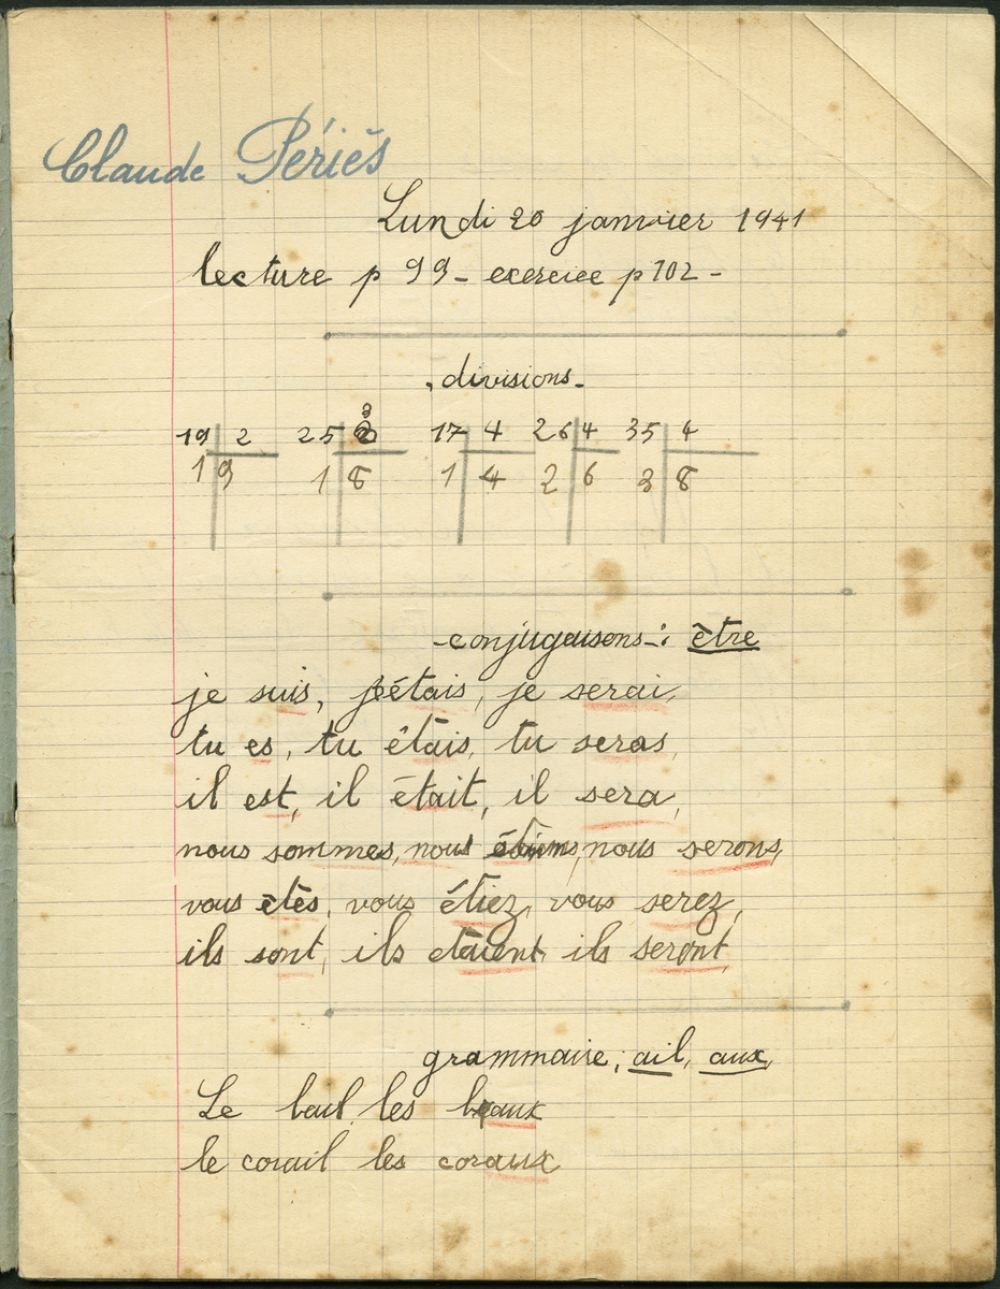 Claude Périès
Lundi 20 janvier 1941
lecture p 99 - exercice p 102 -
, divisions -
19 2 25 3 17 4 26 4 35 4
1 9 1 8 1 4 2 6 3 8
- conjugaisons - : être
je suis, j'étais, je serai,
tu es, tu étais, tu seras,
il est, il était, il sera,
nous sommes, nous étions, nous serons,
vous êtes, vous étiez, vous serez,
ils sont, ils étaient, ils seront,
grammaire : ail, aux,
Le bail, les baux
le corail les coraux